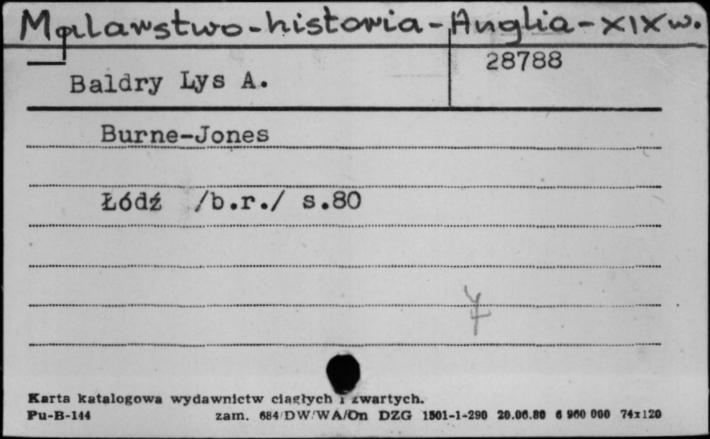 Malarstwo-historia-Anglia-XIX w.
28788
Baldry Lys A.
Burne-Jones
Łódź /b.r./ s.80
Karta katalogowa wydawnictw ciągłych i zwartych.
Pu-B-144 zam. 684/DW/WA/On DZG 1501-1-290 20.06.80 6 960 000 74x120